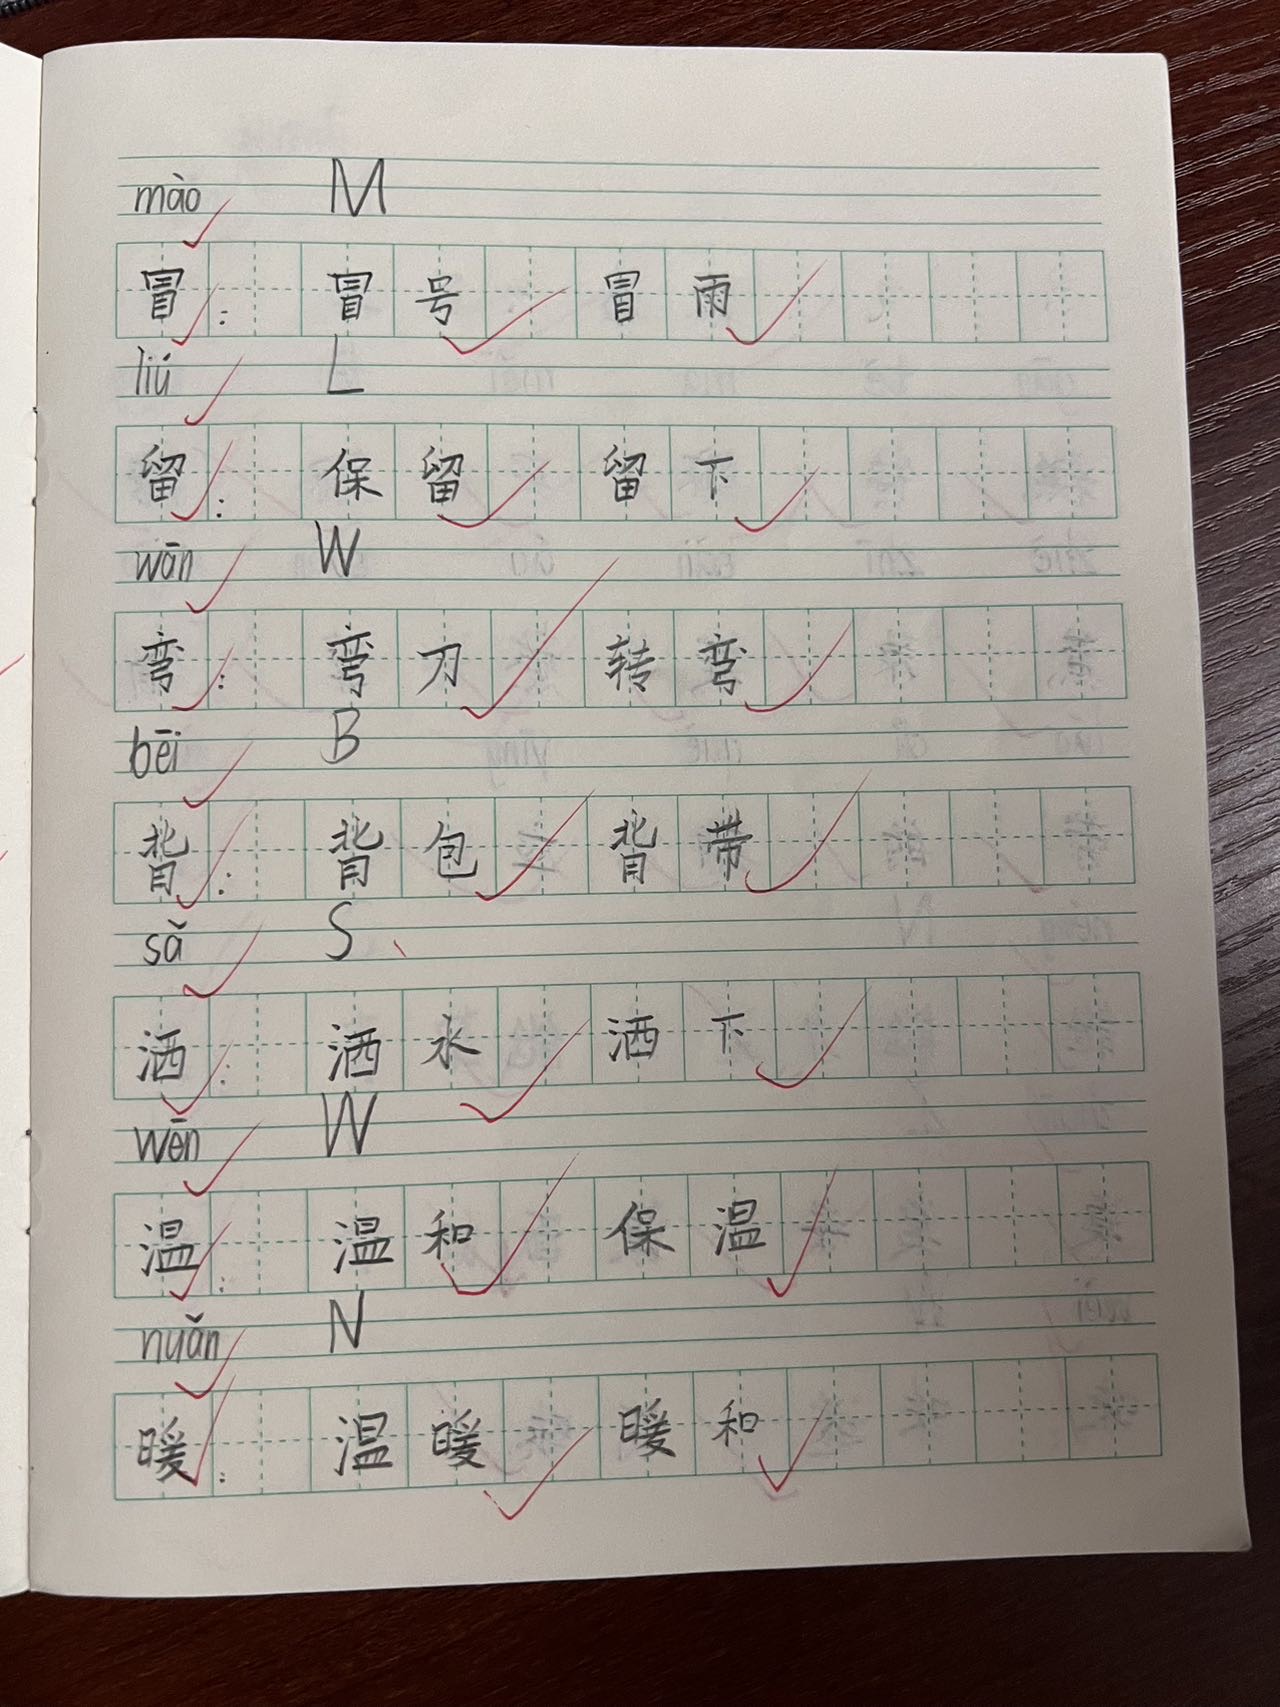 mào M
冒： 冒号 冒雨
liú L
留： 保留 留下
wān W
弯： 弯刀 转弯
bēi B
背： 背包 背带
sǎ S
洒： 洒水 洒下
wēn W
温： 温和 保温
nuǎn N
暖： 温暖 暖和